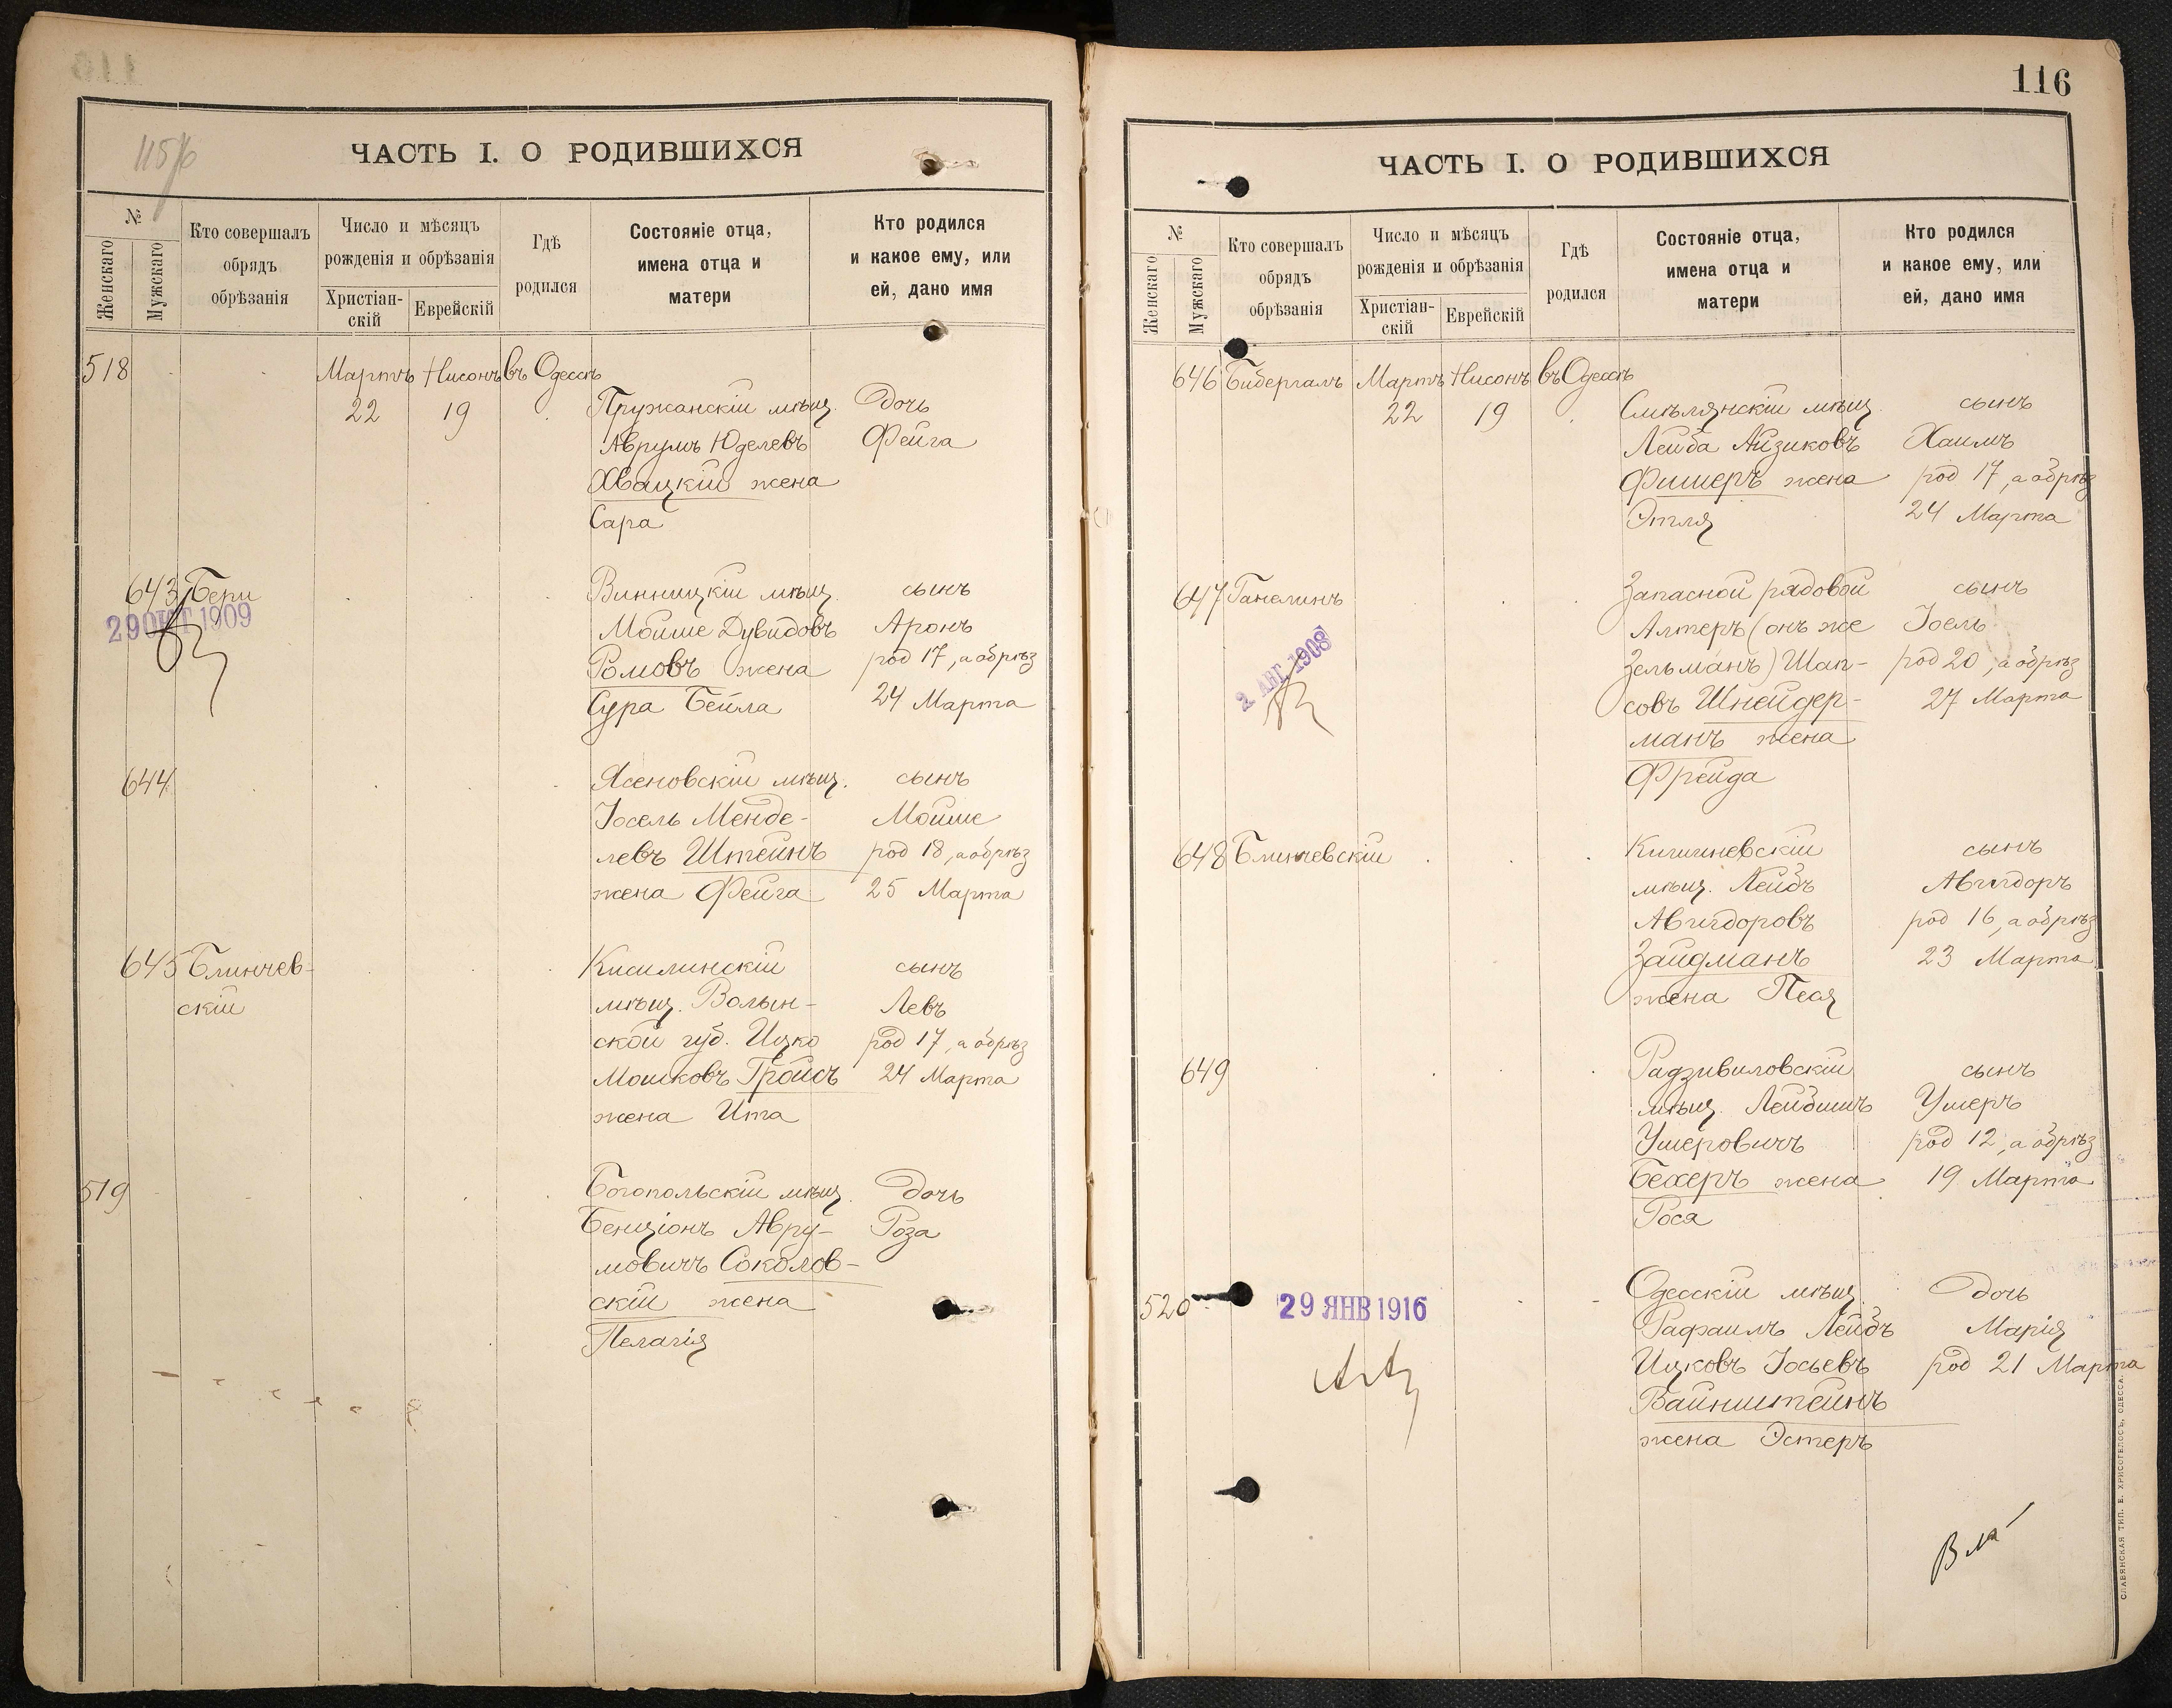 115/6
ЧАСТЬ I. О РОДИВШИХСЯ
№
Женскаго
Мужскаго
Кто совершалъ
обрядъ
обрѣзанія
Число и мѣсяцъ
рожденія и обрѣзанія
Христіан-
скій
Еврейскій
Гдѣ
родился
Состояніе отца,
имена отца и
матери
Кто родился
и какое ему, или
ей, дано имя
518 Мартъ Нисонъ въ Одессѣ
22 19 Пружанскій мѣщ. Дочь
Аврумъ Юделевъ Фейга
Хвацкій жена
Сара
643 Бери Винницкій мѣщ. сынъ
29 ОКТ 1909 Мойше Дувидовъ Аронъ
Ромовъ жена род 17, а обрѣз
Сура Бейла 24 Марта
644 Ясеновскій мѣщ. сынъ
Іосель Менде- Мойше
левъ Штейнъ род 18, а обрѣз
жена Фейга 25 Марта
645 Блинчев- Кисилинскій сынъ
скій мѣщ. Волын- Левъ
ской губ. Ицко род 17, а обрѣз
Мошковъ Гройсъ 24 Марта
жена Ита
519 Богопольскій мѣщ. Дочь
Бенціонъ Авру- Роза
мовичъ Соколов-
скій жена
Пелагія
116
ЧАСТЬ I. О РОДИВШИХСЯ
№
Женскаго
Мужскаго
Кто совершалъ
обрядъ
обрѣзанія
Число и мѣсяцъ
рожденія и обрѣзанія
Христіан-
скій
Еврейскій
Гдѣ
родился
Состояніе отца,
имена отца и
матери
Кто родился
и какое ему, или
ей, дано имя
646 Бибергалъ Мартъ Нисонъ въ Одессѣ
22 19 Смѣлянскій мѣщ. сынъ
Лейба Айзиковъ Хаимъ
Фишеръ жена род 17, а обрѣз
Этля 24 Марта
647 Ганелинъ Запасной рядовой сынъ
2 АВГ. 1908 Алтеръ (онъ же Іоель
Зельманъ) Шап- род 20, а обрѣз
совъ Шнейдер- 27 Марта
манъ жена
Фрейда
648 Блинчевскій Кишиневскій сынъ
мѣщ. Лейбъ Авигдоръ
Авигдоровъ род 16, а обрѣз
Зайдманъ 23 Марта
жена Песя
649 Радзивиловскій сынъ
мѣщ. Лейбишъ Ушеръ
Ушеровичъ род 12, а обрѣз
Бехеръ жена 19 Марта
Рося
520 29 ЯНВ 1916 Одесскій мѣщ. дочь
Рафаилъ Лейбъ Марія
Ицковъ Іосьевъ род 21 Марта
Вайнштейнъ
жена Эстеръ
СЛАВЯНСКАЯ ТИП. Е. ХРИСОГЕЛОСЪ, ОДЕССА.